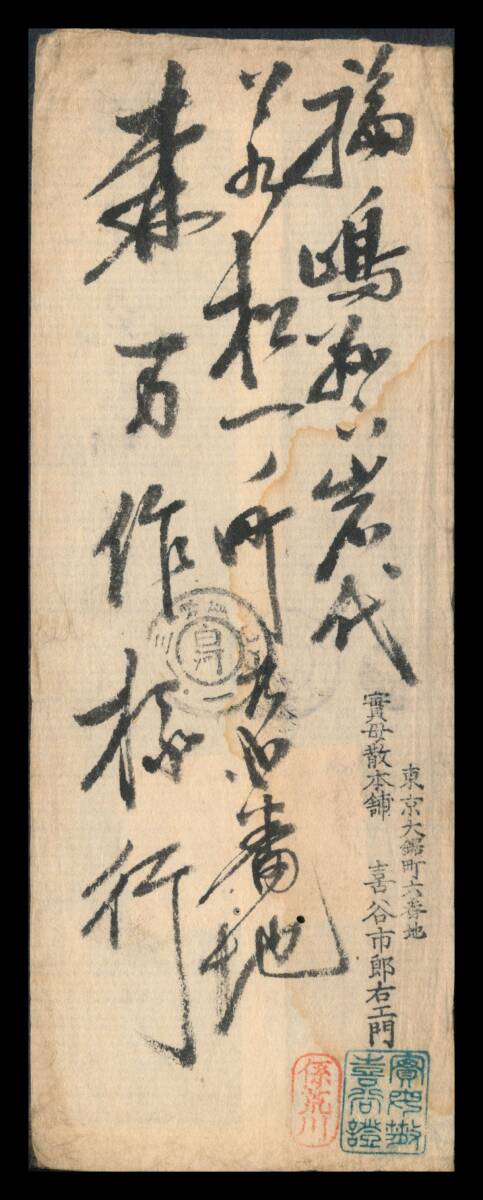 福嶋縣下岩代
若松一ノ町五四番地
森万作様行
東京大鋸町六番地
實母散本舗 喜谷市郎右エ門
實母散
喜谷證
係荒川